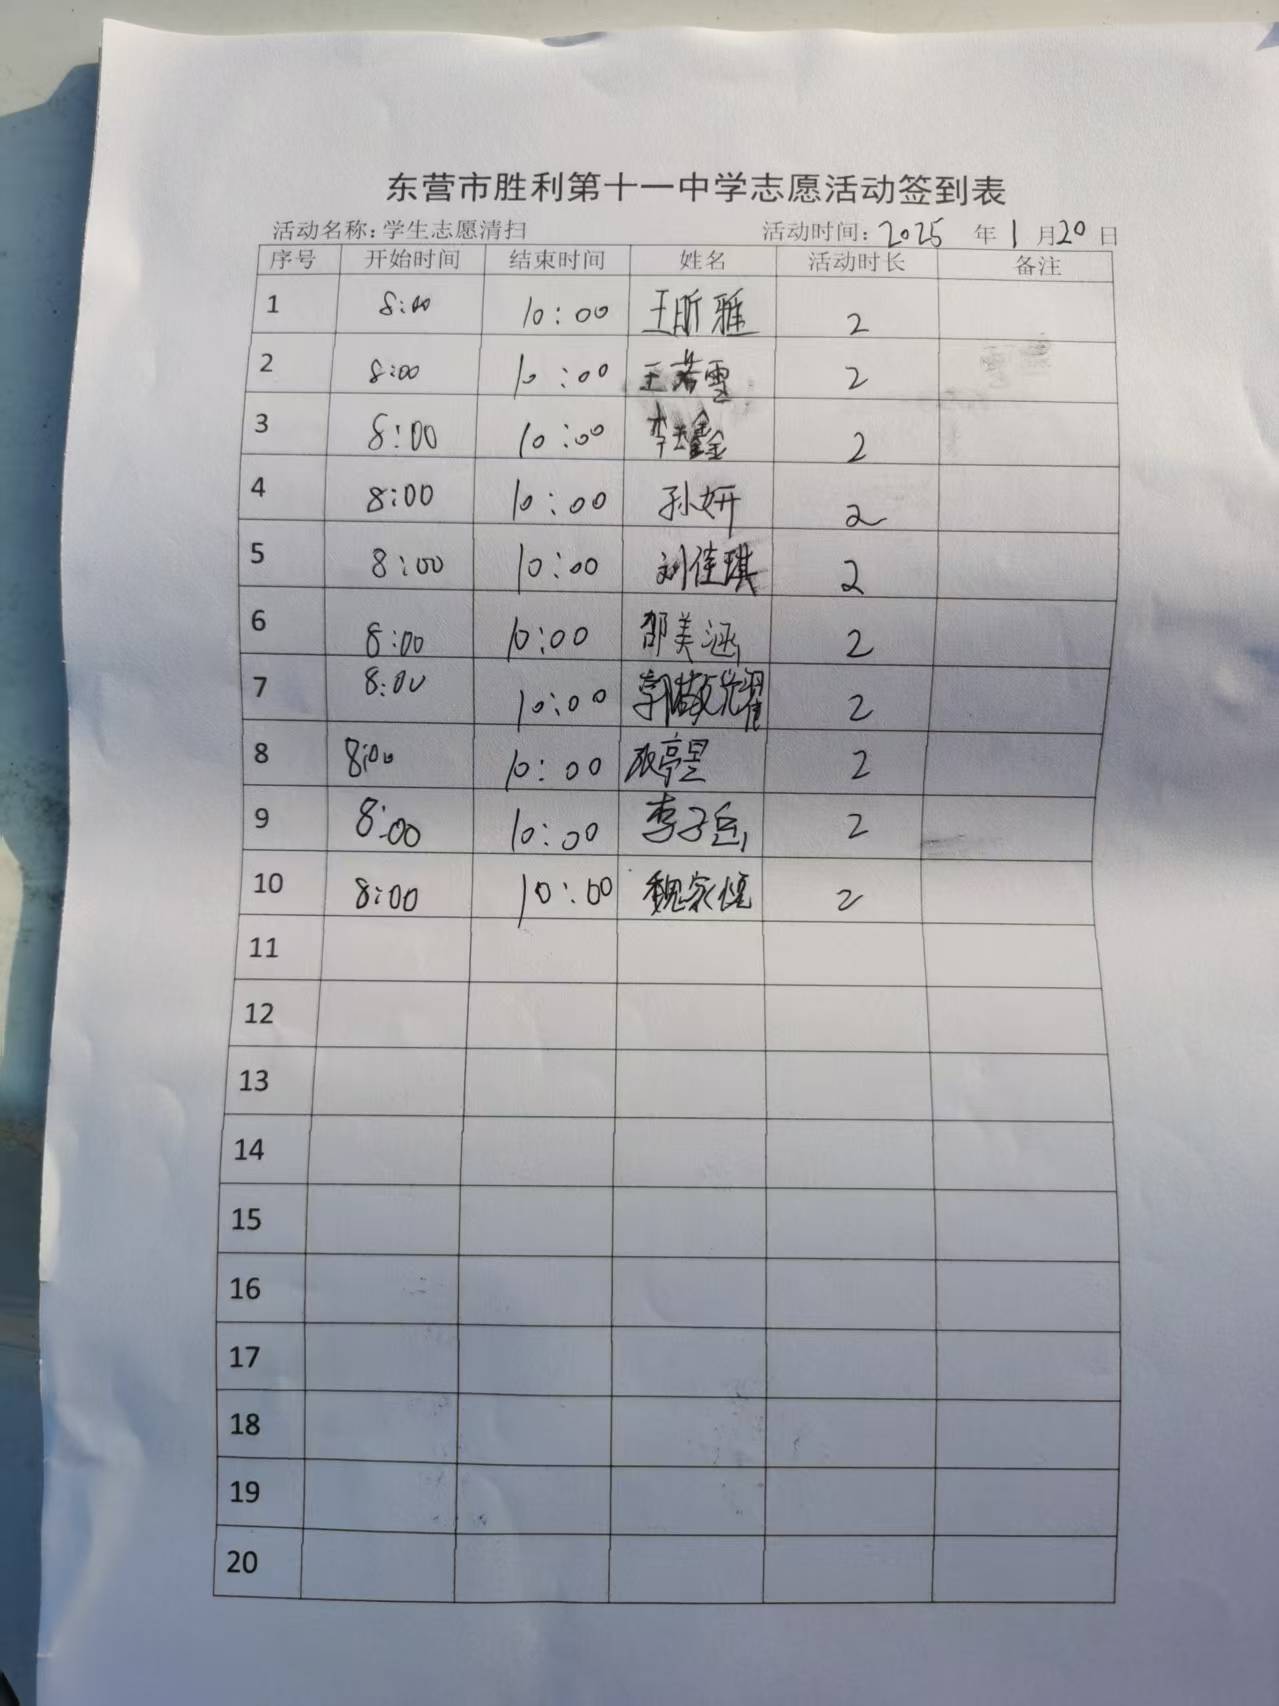 东营市胜利第十一中学志愿活动签到表
活动名称：学生志愿清扫 活动时间：2025 年 1 月 20 日
序号 开始时间 结束时间 姓名 活动时长 备注
1 8:00 10:00 王昕雅 2
2 8:00 10:00 王若雪 2
3 8:00 10:00 李 鑫 2
4 8:00 10:00 孙妍 2
5 8:00 10:00 刘佳琪 2
6 8:00 10:00 邵美涵 2
7 8:00 10:00 郭 耀 2
8 8:00 10:00 亭昱 2
9 8:00 10:00 李子 2
10 8:00 10:00 魏家恒 2
11
12
13
14
15
16
17
18
19
20